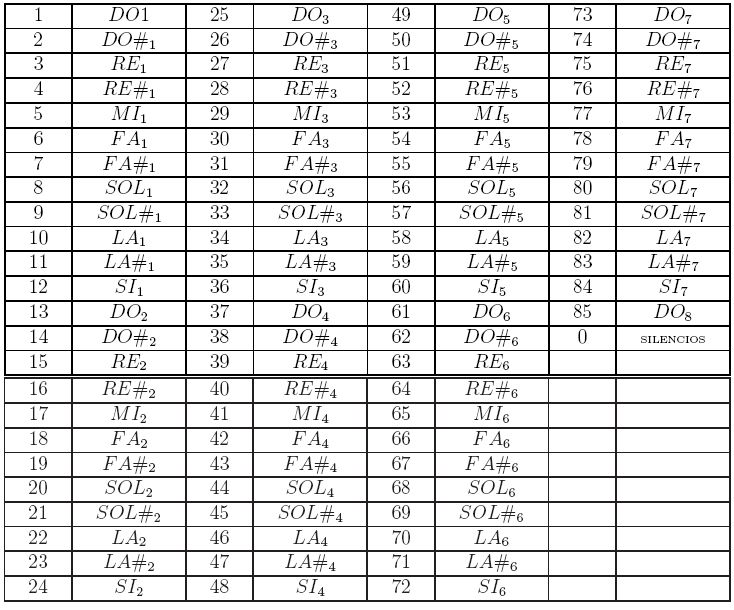 1 DO1 25 DO₃ 49 DO₅ 73 DO₇
2 DO#₁ 26 DO#₃ 50 DO#₅ 74 DO#₇
3 RE₁ 27 RE₃ 51 RE₅ 75 RE₇
4 RE#₁ 28 RE#₃ 52 RE#₅ 76 RE#₇
5 MI₁ 29 MI₃ 53 MI₅ 77 MI₇
6 FA₁ 30 FA₃ 54 FA₅ 78 FA₇
7 FA#₁ 31 FA#₃ 55 FA#₅ 79 FA#₇
8 SOL₁ 32 SOL₃ 56 SOL₅ 80 SOL₇
9 SOL#₁ 33 SOL#₃ 57 SOL#₅ 81 SOL#₇
10 LA₁ 34 LA₃ 58 LA₅ 82 LA₇
11 LA#₁ 35 LA#₃ 59 LA#₅ 83 LA#₇
12 SI₁ 36 SI₃ 60 SI₅ 84 SI₇
13 DO₂ 37 DO₄ 61 DO₆ 85 DO₈
14 DO#₂ 38 DO#₄ 62 DO#₆ 0 SILENCIOS
15 RE₂ 39 RE₄ 63 RE₆
16 RE#₂ 40 RE#₄ 64 RE#₆
17 MI₂ 41 MI₄ 65 MI₆
18 FA₂ 42 FA₄ 66 FA₆
19 FA#₂ 43 FA#₄ 67 FA#₆
20 SOL₂ 44 SOL₄ 68 SOL₆
21 SOL#₂ 45 SOL#₄ 69 SOL#₆
22 LA₂ 46 LA₄ 70 LA₆
23 LA#₂ 47 LA#₄ 71 LA#₆
24 SI₂ 48 SI₄ 72 SI₆